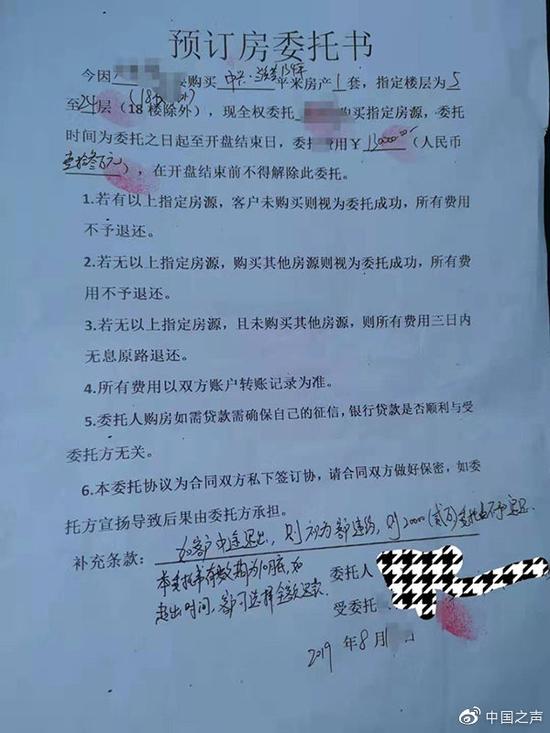 预订房委托书
今因 购买 中 平米房产1套，指定楼层为5
至24层（18楼除外），现全权委托 购买指定房源，委托
时间为委托之日起至开盘结束日，委 费用￥130000.00（人民币
壹拾叁万元），在开盘结束前不得解除此委托。
1.若有以上指定房源，客户未购买则视为委托成功，所有费用
不予退还。
2.若无以上指定房源，购买其他房源则视为委托成功，所有费
用不予退还。
3.若无以上指定房源，且未购买其他房源，则所有费用三日内
无息原路退还。
4.所有费用以双方账户转账记录为准。
5.委托人购房如需贷款需确保自己的征信，银行贷款是否顺利与受
委托方无关。
6.本委托协议为合同双方私下签订协，请合同双方做好保密，如委
托方宣扬导致后果由委托方承担。
补充条款：如客户中途退出，则视为客户违约，则20000（贰万）委托金不予退还.
本委托书有效期为10月底，如
超出时间，客户可选择全额退款.
委托人
受委托
2019年8月1 日
中国之声